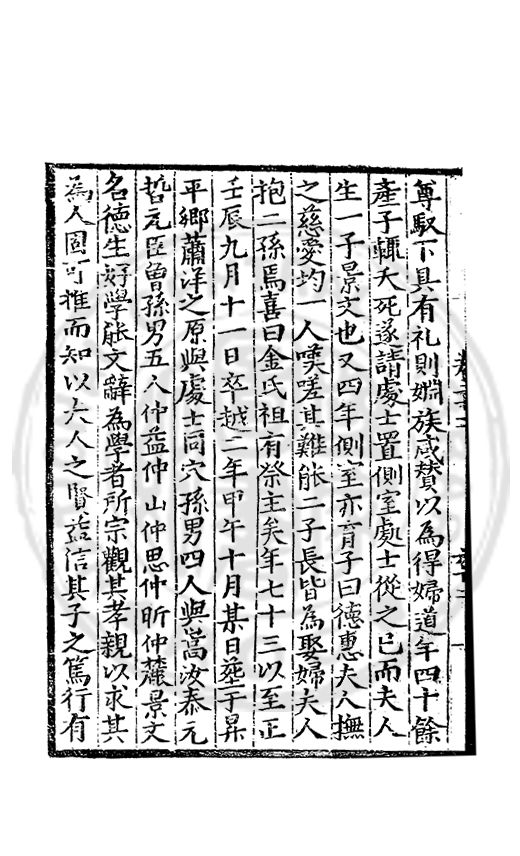 尊馭下具有礼則婣族咸賛以為得婦道年四十餘
產子輒夭死遂請處士置側室處士從之已而夫人
生一子景文也又四年側室亦育子曰德惠夫人撫
之慈愛均一人嘆嗟其難能二子長皆為娶婦夫人
抱二孫焉喜曰金氏祖有祭主矣年七十三以至正
壬辰九月十一日卒越二年甲午十月某日葬于昇
平鄉蕭洋之原與處士同穴孫男四人與嵩汝泰元
哲元臣曾孫男五人仲益仲山仲思仲昕仲麓景文
名德生好學能文辭為學者所宗觀其孝親以求其
為人固可推而知以夫人之賢益信其子之篤行有